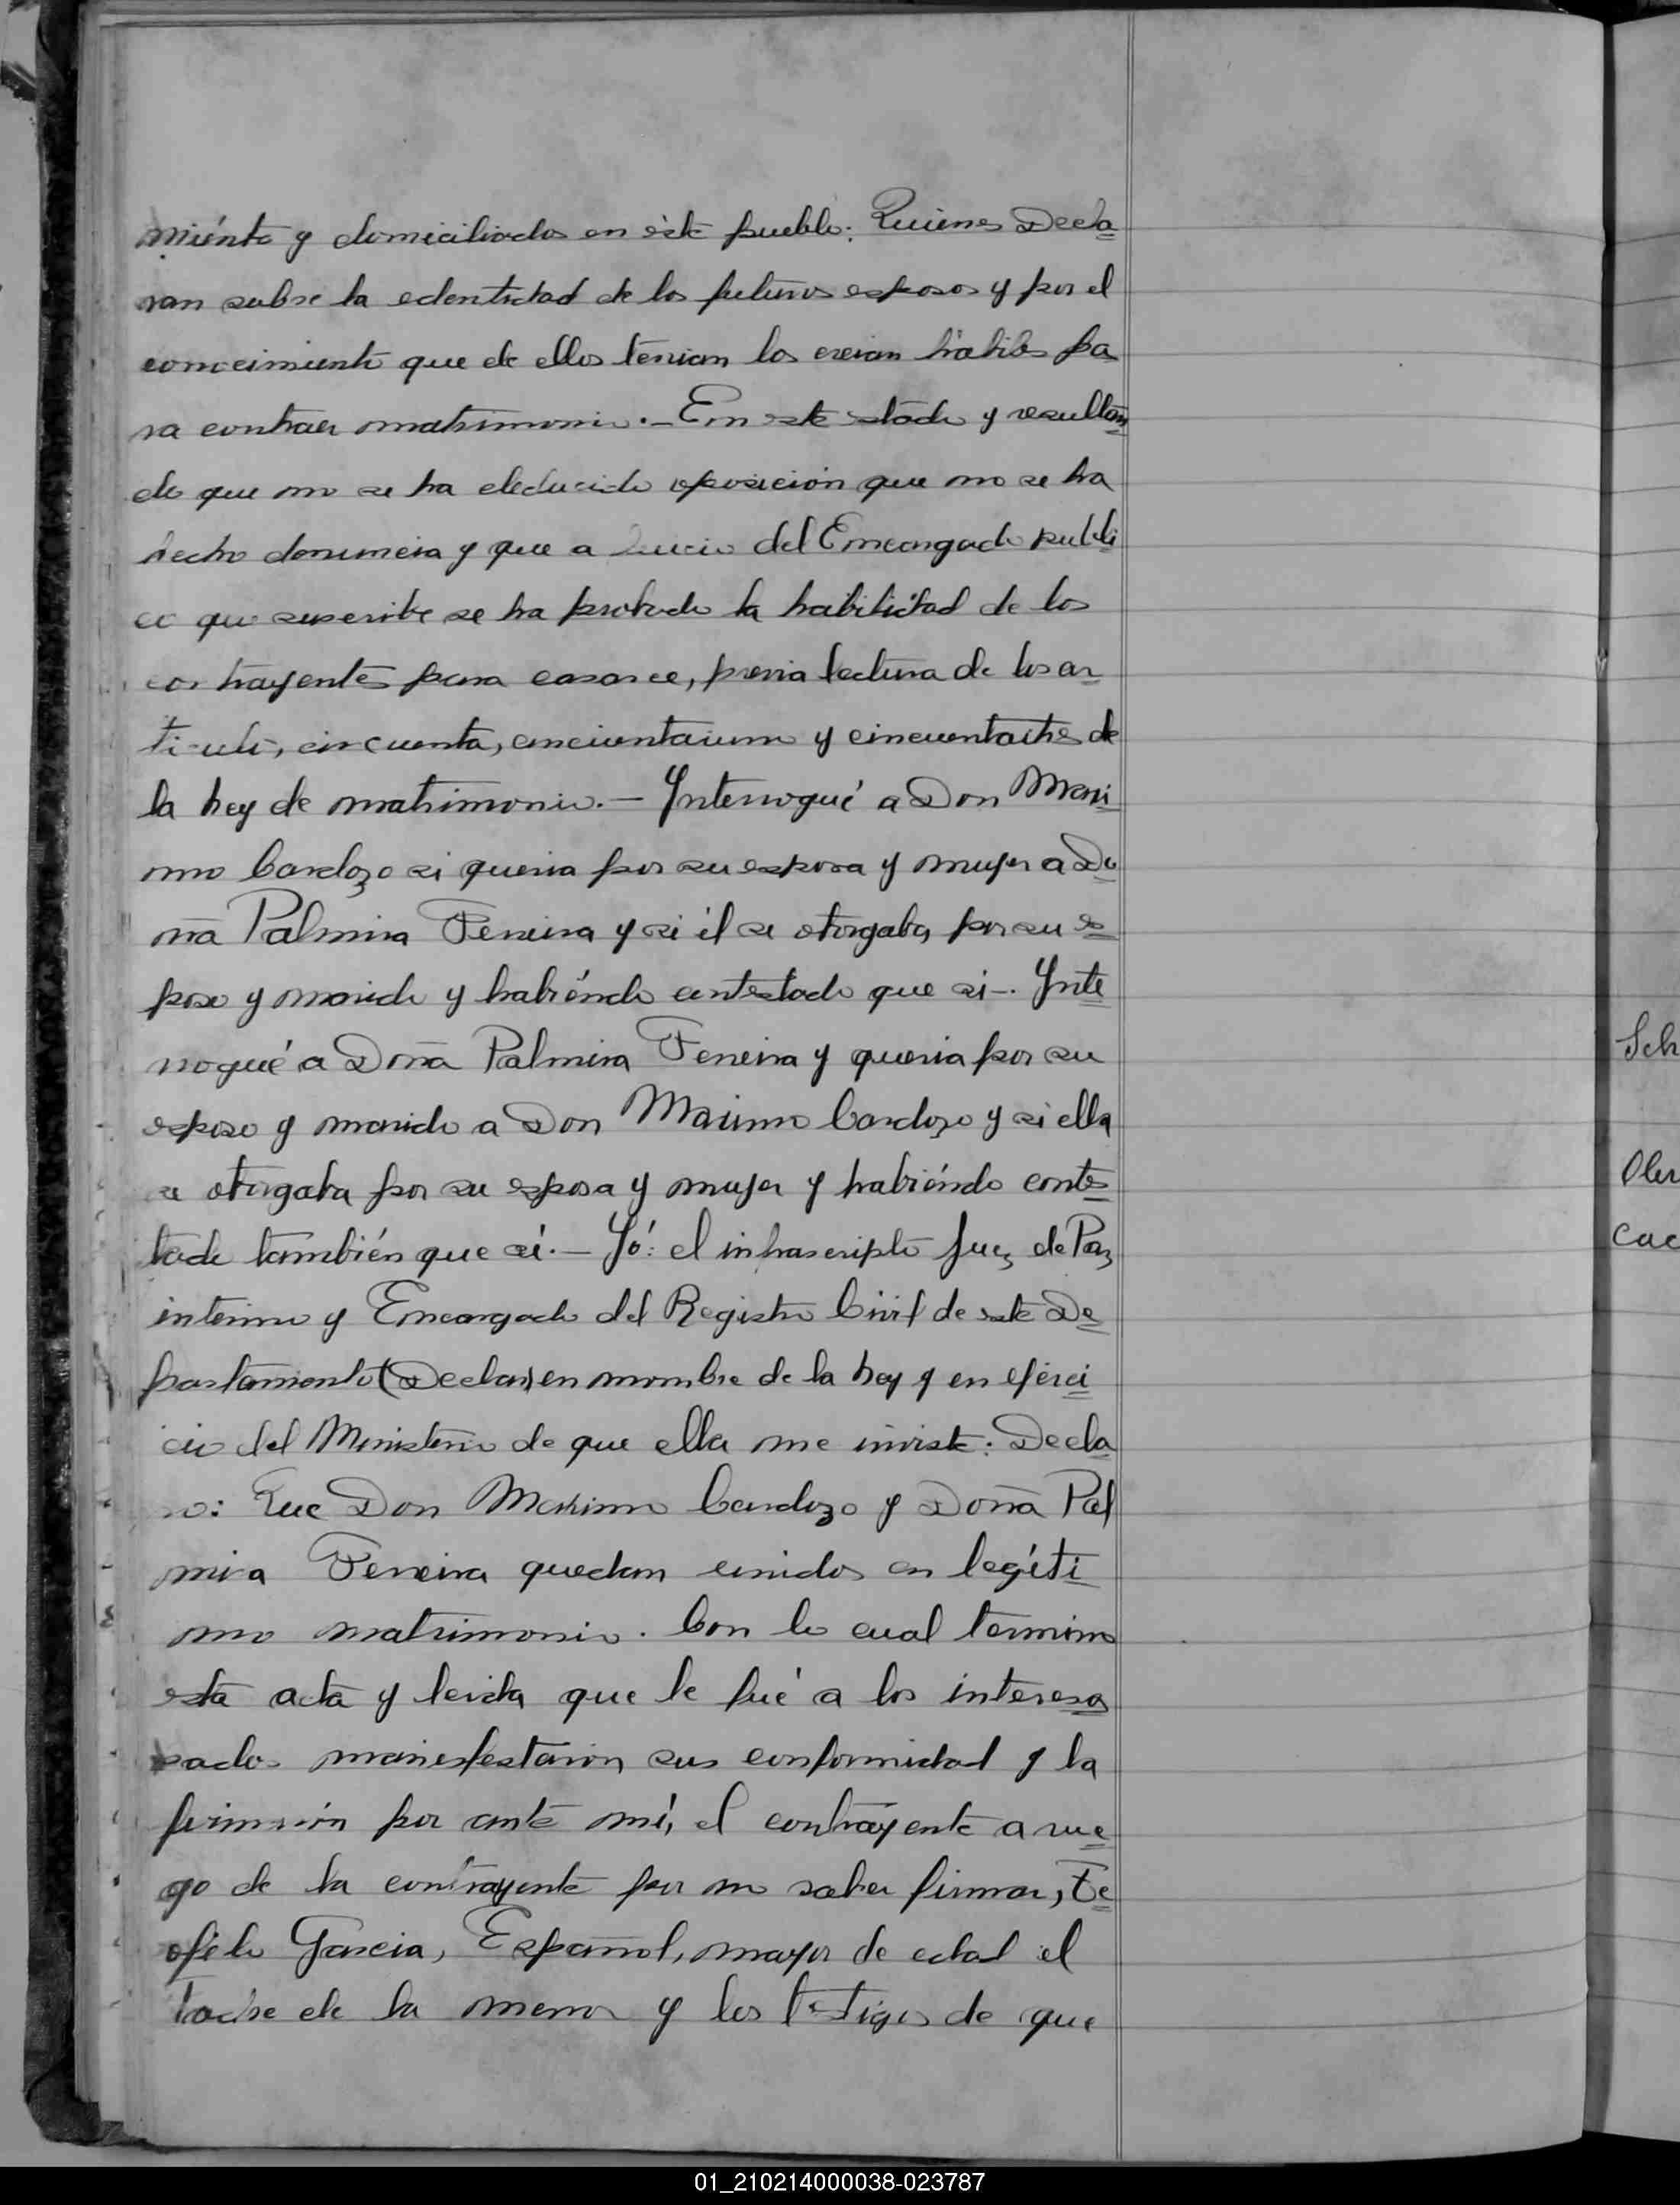 miénto y domiciliados en éste pueblo: Quienes Decla
ran sobre la edentidad de los futuros esposos y por el
conocimiento que de ellos tenian los creian hábiles pa
ra contraer matrimonio.— En este estado y resultan
do que no se ha deducido oposición que no se ha
hecho denuncia y que a Juicio del Encargado publi
co que suscribe se ha probado la habilidad de los
contrayentes para casarce, previa lectura de los ar
ticulo, cincuenta, cincuentaiuno y cincuentaitres de
la Ley de matrimonio.— Ynterrogué a Don Maxi
mo Cardozo si queria por su esposa y mujer a Do
ña Palmira Ferreira y si él se otorgaba por su es
poso y marido y habiéndo contestado que si—. Ynte
rrogué a Doña Palmira Ferreira y queria por su
esposo y marido a Don Maximo Cardozo y si ella
se otorgaba por su esposa y mujer y habiéndo contes
tado también que sí.— Yó: el infrascripto Juez de Paz
interino y Encargado del Registro Civil de este De
partamiento (Declaro) en nombre de la Ley y en ejérci
cio del Ministerio de que ella me inviste: Decla
ro: Que Don Maximo Cardozo y Doña Pal
mira Ferreira quedan unidos en legíti
mo matrimonio. Con lo cual termino
esta acta y leida que le fué a los interesa
sados manisfestarón sus conformidad y la
firmarón por ante mí, el contrayente a rue
go de la contrayente por no saber firmar, Te
ofilo Garcia, Español, mayor de edad el
Padre de la menor y los testigos de que
Sch
Cac
01_210214000038-023787